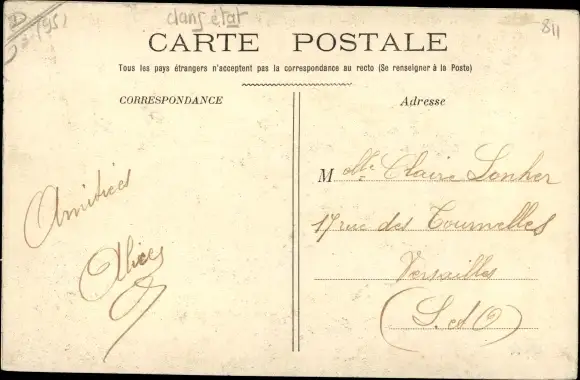 D (95)
dans état
811
CARTE POSTALE
Tous les pays étrangers n'acceptent pas la correspondance au recto (Se renseigner à la Poste)
CORRESPONDANCE
Amitiés
Alice
Adresse
Melle Claire Lonher
17 rue des Tournelles
Versailles
(S. et O)